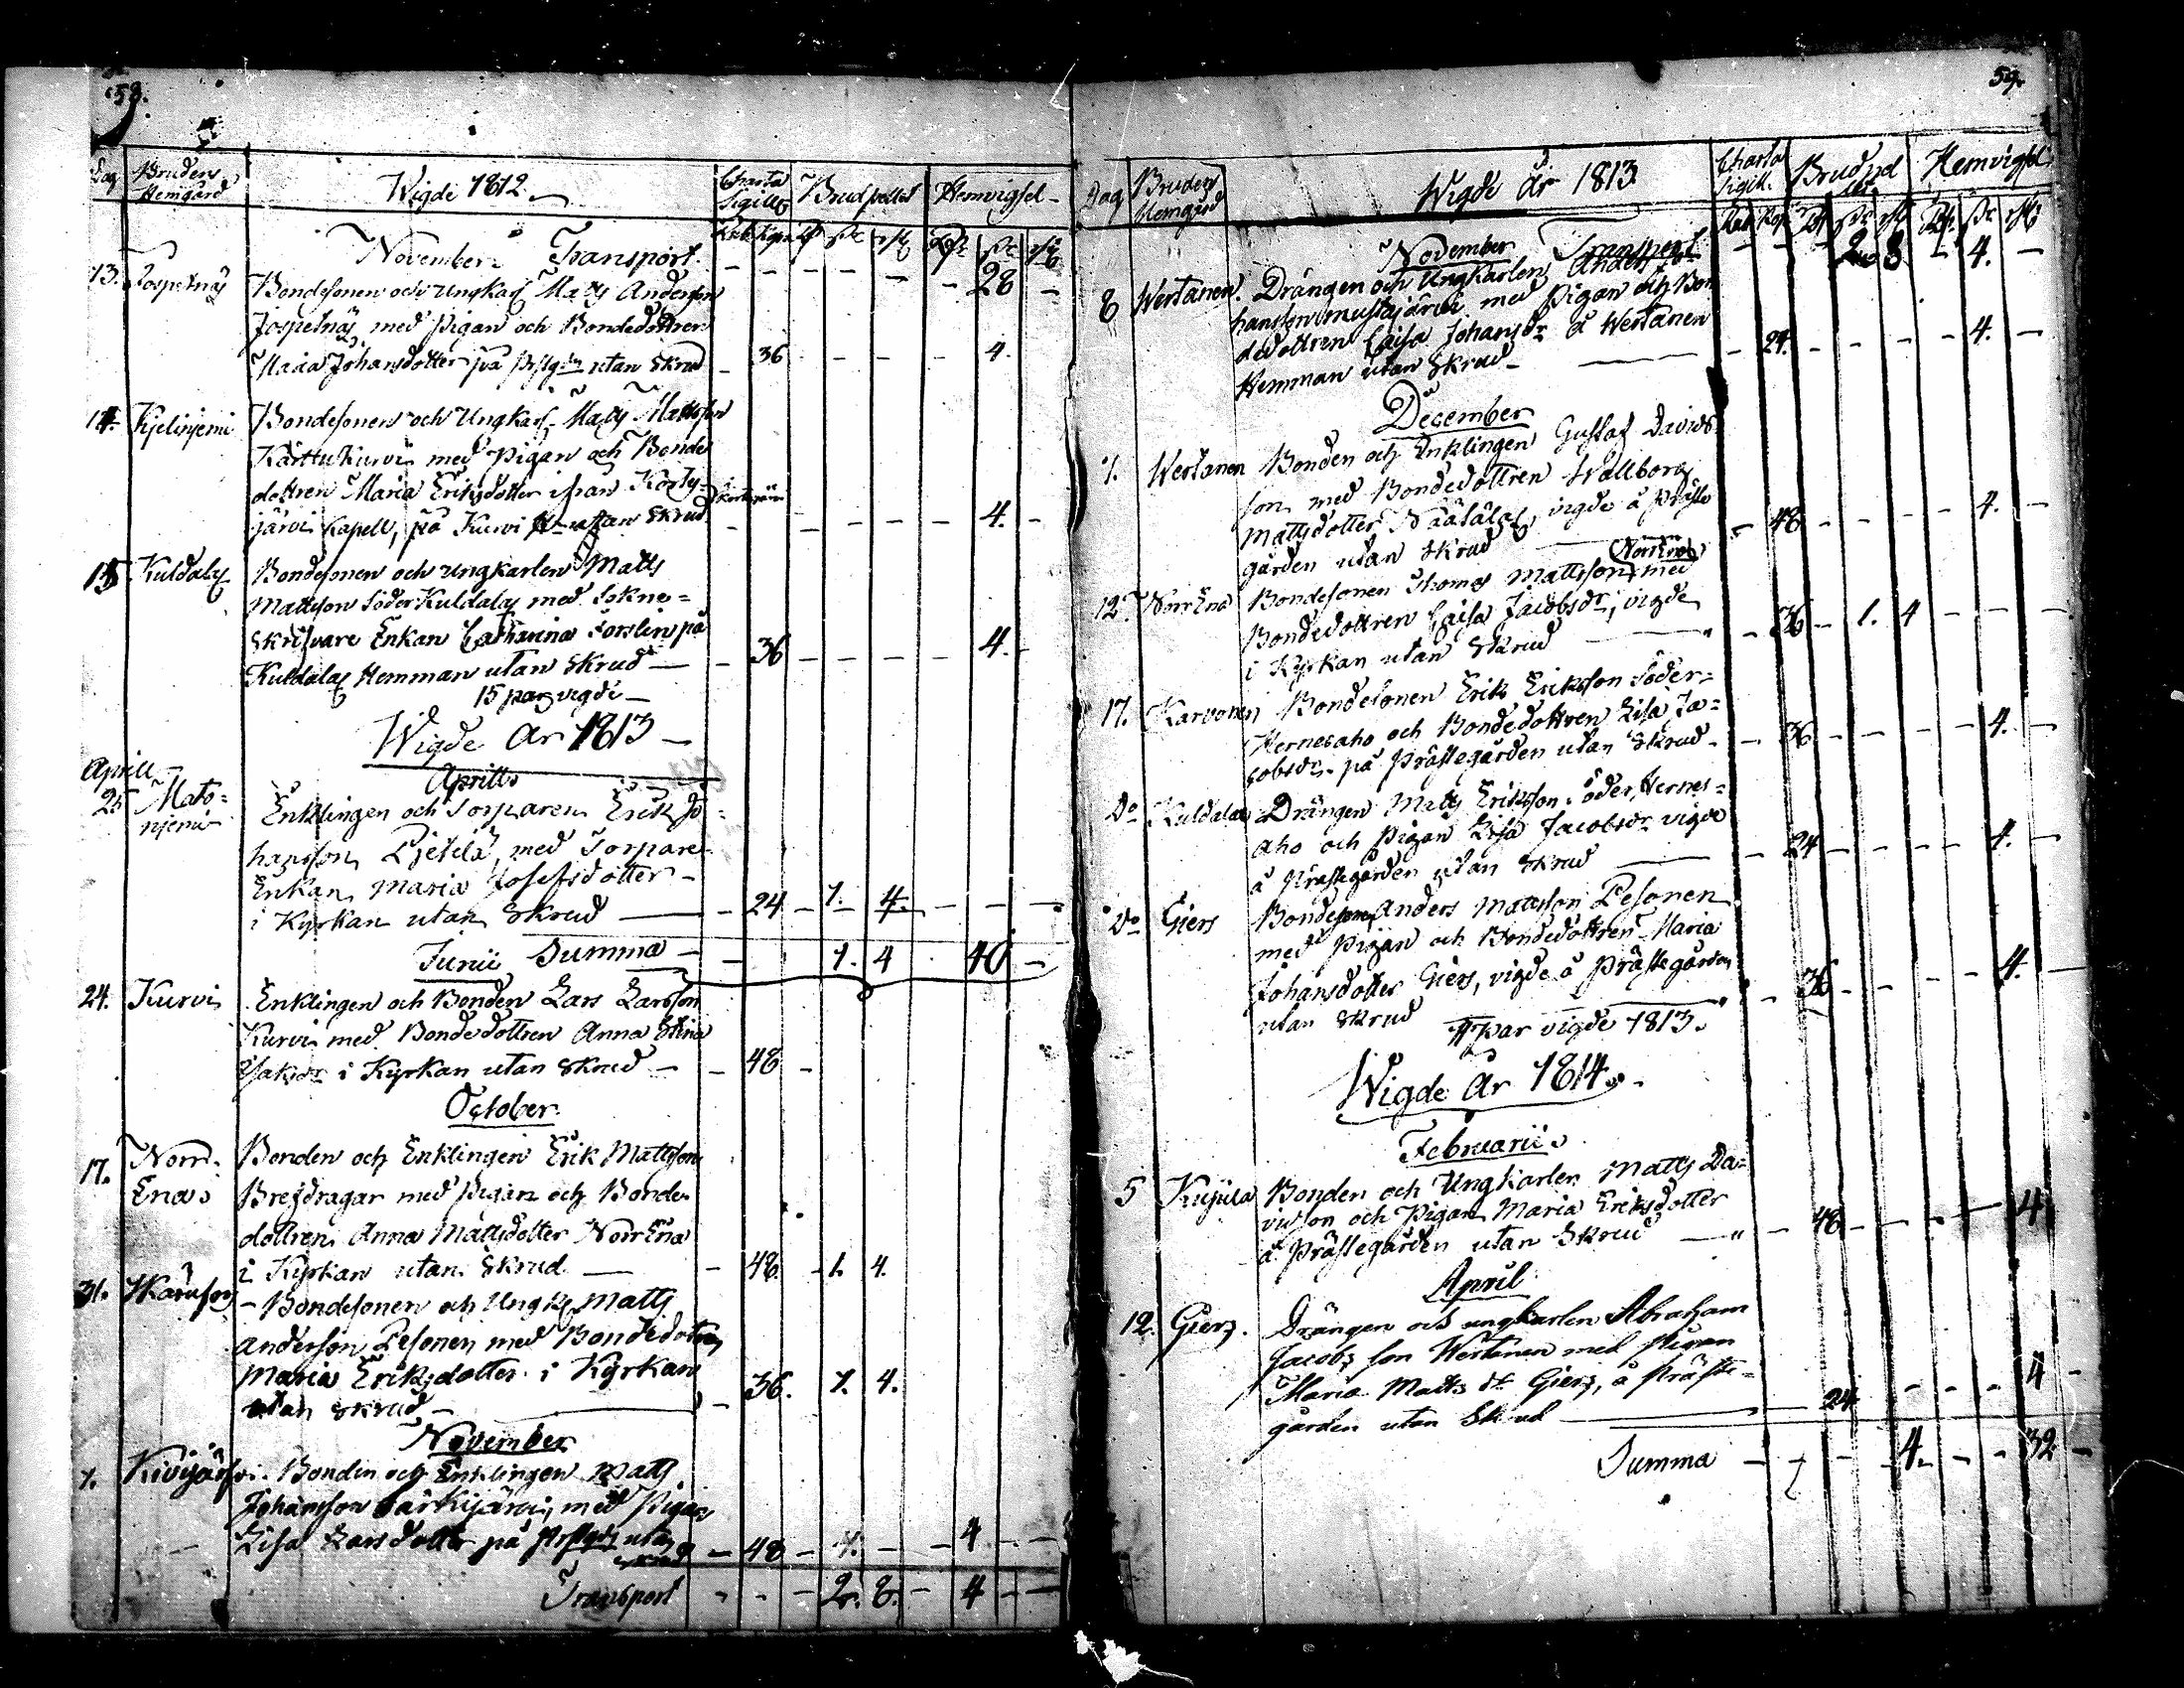 58.
Dag Brudens Hemgård Wigde 1812. Charta Sigill. Brudpallat Hemvigsel
November Transport - - - - - - 28 -
13. Jospetnäs Bondesonen och Ungkarl Matts Andersson
Jospetnäs, med Pigan och Bondedottren
Maria Johansdotter på utan Skrud - 36 - - - - 4.
14. Kjelinjemi Bondesonen och Ungkarl. Matts Mattsson
Kärttu Kurvi med Pigan och Bonde
dottren Maria Eriksdotter ifrån
järvi Kapell, på Kurvi utan Skrud - - - - - - 4. -
15 Kuldalax Bondesonen och Ungkarlen Matts
Mattsson Söder Kuldalax med Sokne=
skrifvare Enkan Catharina Forslin på
Kuldalax Hemman utan Skrud - - 36 - - - - 4. -
15 par vigde -
Wigde År 1813 -
Aprill Aprill
25 Mato= Enklingen och Torparen Erik Jo=
njemi hansson Pjetilä, med Torpare
Enkan Maria Josefsdotter -
i Kyrkan utan Skrud - 24 - 1. 4. - - -
Junii Summa - - 1. 4 40 -
24. Kurvi Enklingen och Bonden Lars Larsson
Kurvi med Bondedottren Anna Stina
Isaksdr i Kyrkan utan Skrud - - 48 -
October
17. Norr- Bonden och Enklingen Erik Mattsson
Ena Bredragar med Pigan och Bonde-
dottren Anna Mattsdotter Norr Ena
i Kyrkan utan Skrud - 48. - 1. 4.
31. - Bondesonen och Ungk. Matts
Andersson Pesonen med Bondedottren
Maria Eriksdotter i Kyrkan
utan Skrud - - 36. 1. 4.
November
1. Kivijärfvi. Bonden och Enklingen Matts
Johansson Särkijärvi, med Pigan
Lisa Larsdotter på utan
Skrud - 48 - 1. - - 4 - -
Transport - - - 2. 8. - 4 - -
59.
Dag Brudens Hemgård Wigde År 1813 Charta Sigill. Brudpal Hemvigsel
November Transport - - 2 8 - 4. -
8 Wertanen. Drängen och Ungkarlen Anders Jo=
hansson Mustajärvi med Pigan och Bon
dedottren Caisa Johansdr å Wertanen
Hemman utan Skrud - - 24. - - - - 4. -
December
1. Wertanen Bonden och Enklingen Gustaf Davids
son med Bondedottren Wallborg
Mattsdotter Näätälax, vigde å Präste
gården utan Skrud - 48 - - - - 4. -
12. Norr Ena Bondesonen Thomas Mattsson Norr Ena med
Bondedottren Caisa Jacobsdr, vigde
i Kyrkan utan Skrud - 36 - 1. 4 - - -
17. Karvonen Bondesonen Erik Eriksson Söder=
Hernesaho och Bondedottren Lisa Ja=
cobsdr. på Prästegården utan Skrud - - 36 - - - - 4. -
Do Kuldalax Drängen Matts Eriksson Söder Hernes=
aho och Pigan Lisa Jacobsdr vigde
å Prästegården utan Skrud - 24 - - - - 4. -
Do Giers Bondeson Anders Mattsson Pesonen
med Pigan och Bondedottren Maria
Johansdotter Giers, vigde å Prästegården
utan Skrud - 36 - - - - 4. -
11 par vigde 1813.
Wigde År 1814.
Februarii
5 Kujula Bonden och Ungkarlen Matts Da=
vidson och Pigan Maria Eriksdotter
å Prästegården utan Skrud - 48 - - - - 4
April
12. Giers. Drängen och ungkarlen Abraham
Jacobs son Wertanen med Pigan
Maria Matts dr Giers, å Präste=
gården utan Skrud - 24 - - - 4 -
Summa - - - 4. - - 32 -